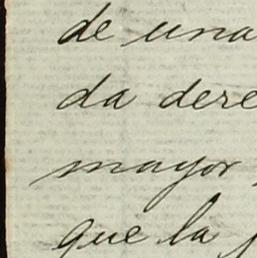 de una
da dere
mayor
que la